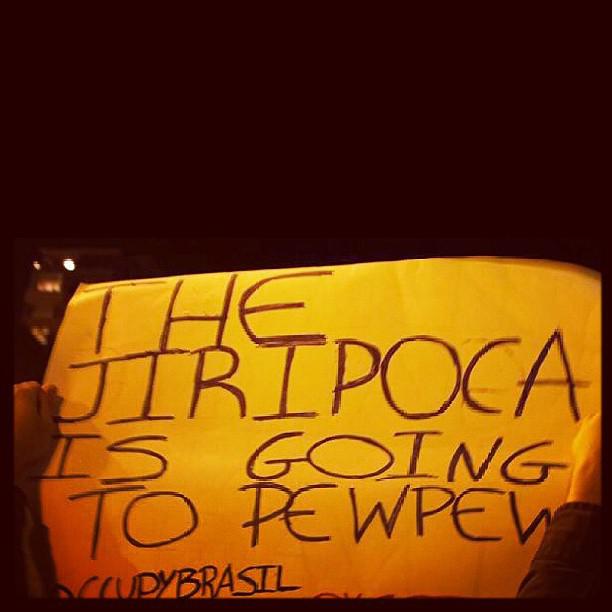 THE
JIRIPOCA
IS GOING
TO PEWPEW
OCCUPYBRASIL